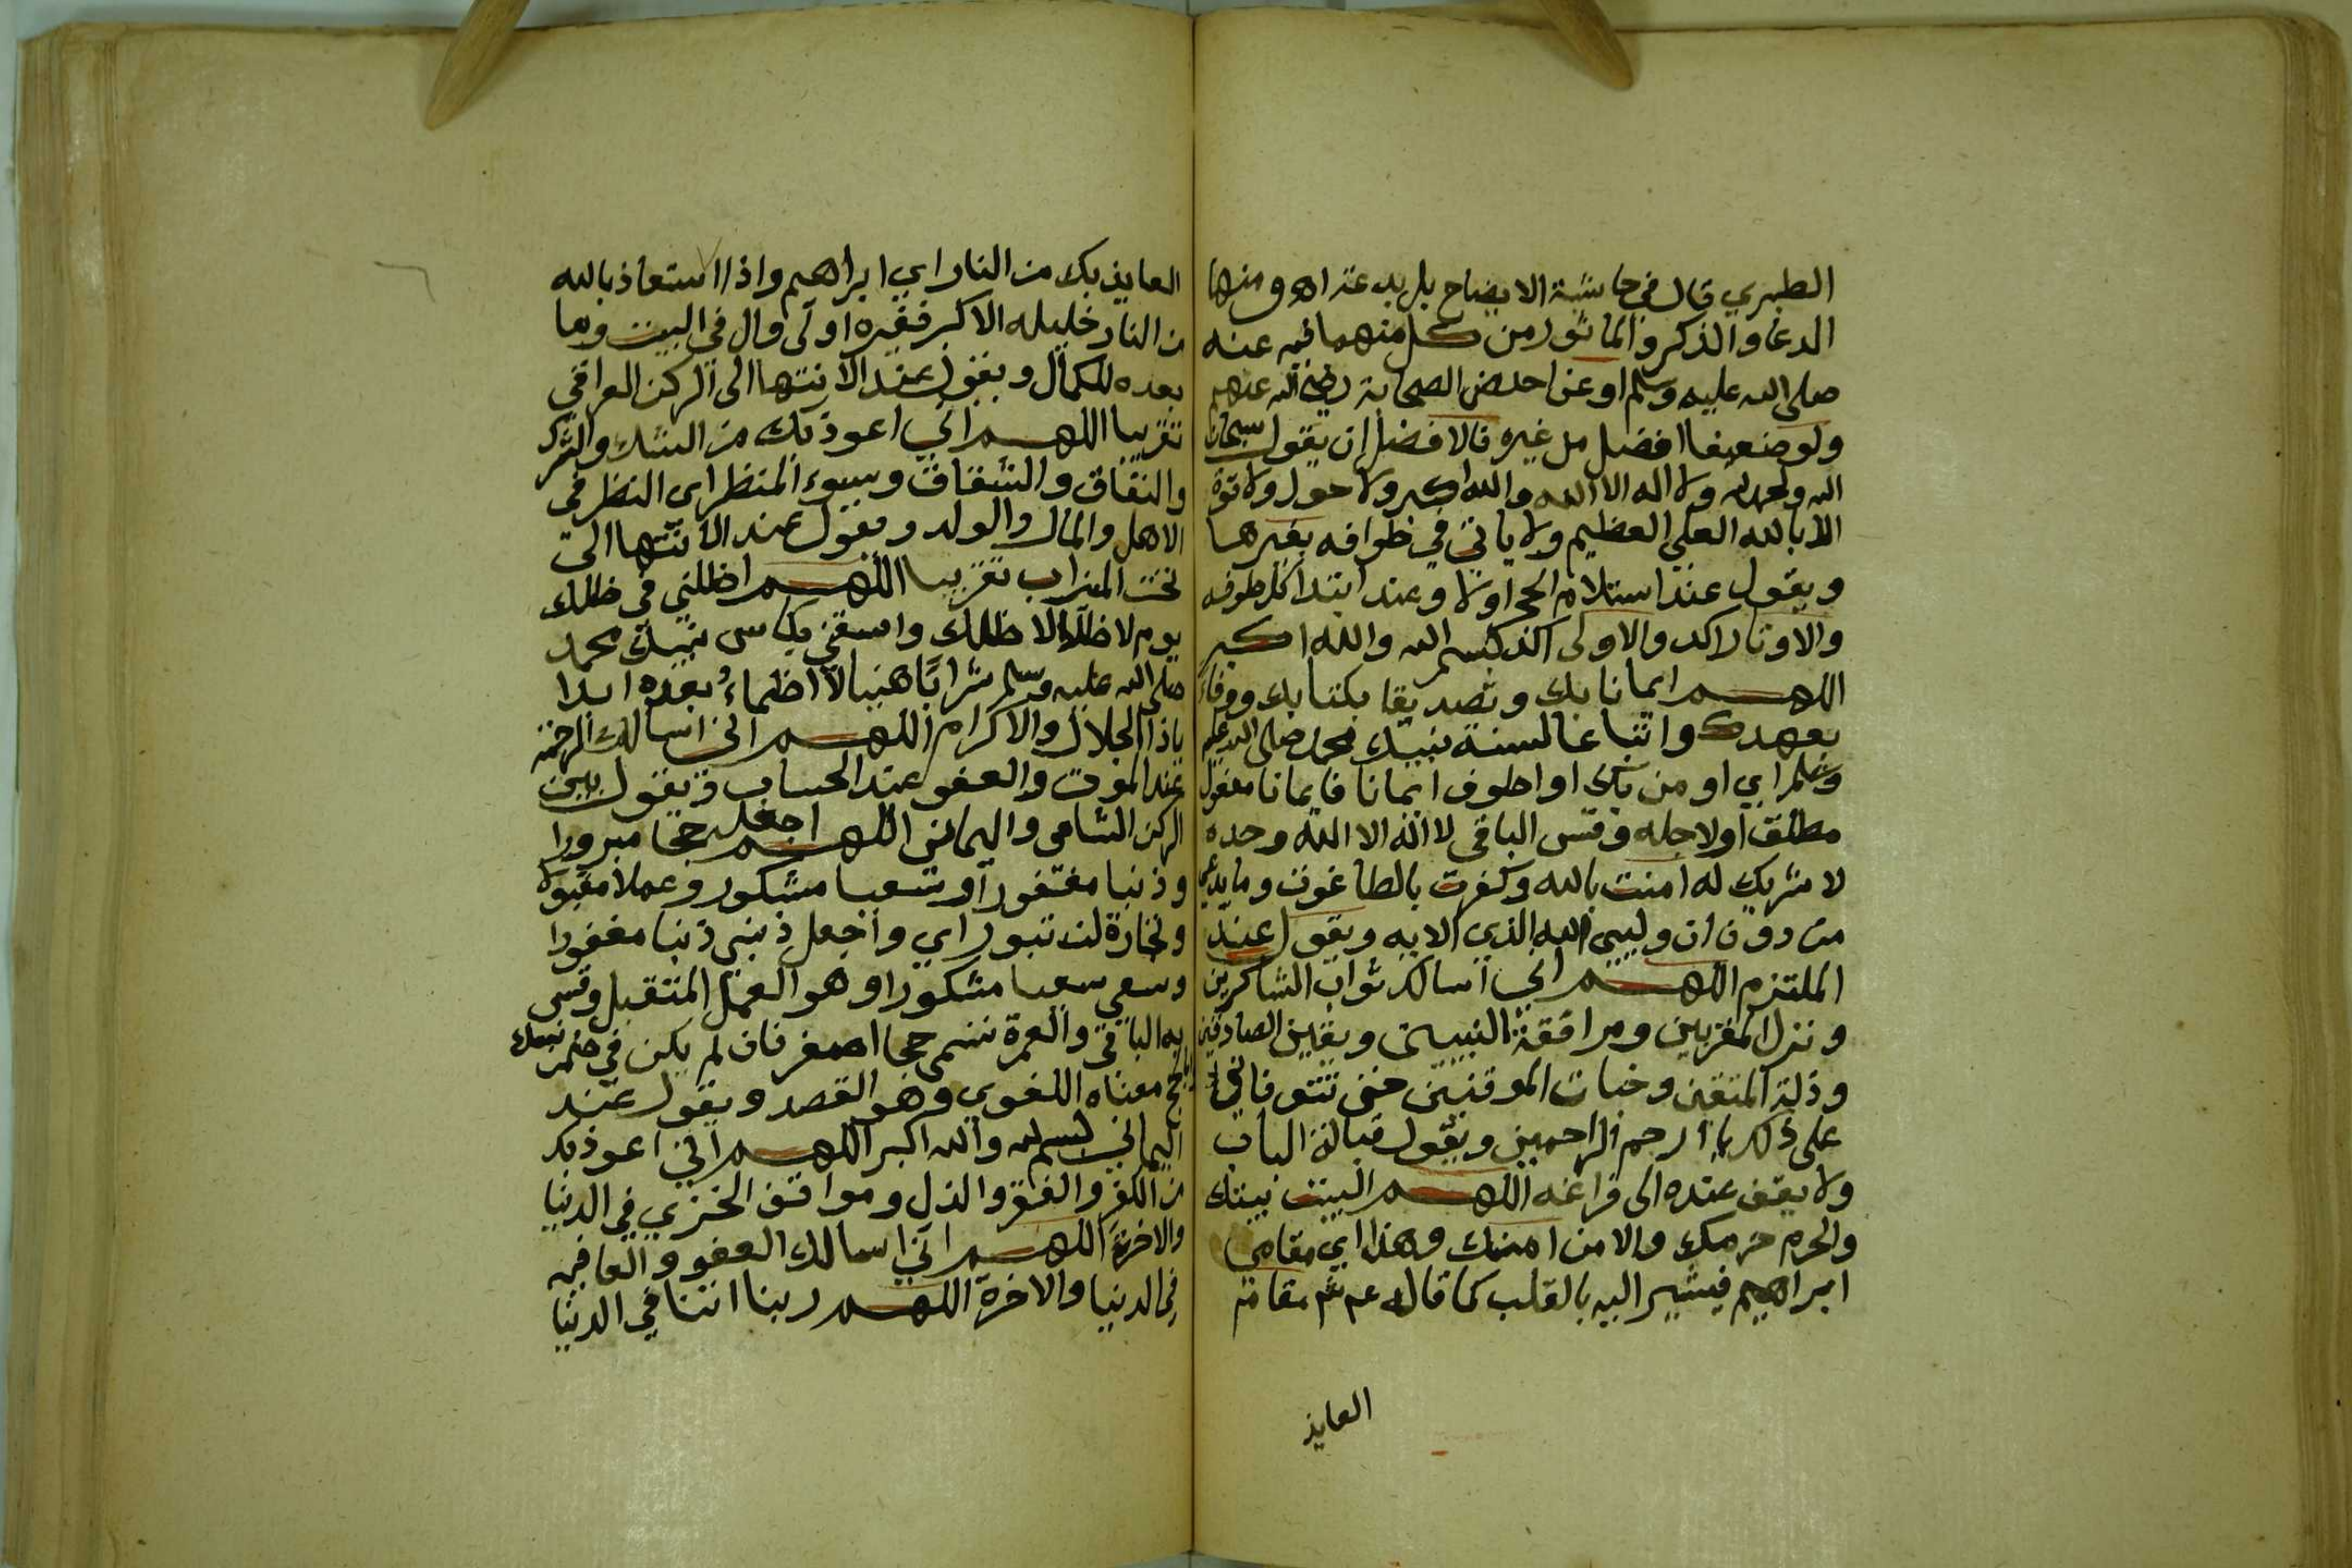 الطبري قال في حاشية الايضاح بل يدعه اه ومنها
الدعا والذكر والماثور من كل منهما فيه عنه
صلى الله عليه وسلم او عن احد من الصحابة رضي الله عنهم
ولو ضعيفا افضل من غيره فالافضل ان يقول سبحان
الله والحمد لله ولا اله الا الله والله اكبر ولا حول ولا قوة
الا بالله العلي العظيم ولا ياتي في طوافه بغيرها
ويقول عند استلام الحجر اولا وعند ابتدا كل طوفه
والاوتار اكد والاولى اكد بسم الله والله اكبر
اللهم ايمانا بك وتصديقا بكتابك ووفاء
بعهدك واتباعا لسنة نبيك محمد صلى الله عليه
وسلم اي اومن بك او اطوف ايمانا فايمانا مفعول
مطلق او لاجله وقس الباقي لا اله الا الله وحده
لا شريك له امنت بالله وكفرت بالطاغوت وما يدعى
من دونه ان وليي الله الذي الايه ويقول عند
الملتزم اللهم اني اسالك ثواب الشاكرين
ونزل المقربين ومرافقة النبيين ويقين الصادقين
وذلة المتقين وخبات الموقنين حتى تتوفاني
على ذلك يا ارحم الراحمين ويقول قبالة الباب
ولا يقف عنده الى فراغه اللهم البيت بيتك
والحرم حرمك والامن امنك وهذا اي مقامي
ابراهيم فيشير اليه بالقلب كما قاله مقام
العايذ
العايذ بك من النار اي ابراهيم واذا استعاذ بالله
من النار خليله الاكبر فغيره اولى وال في البيت وما
بعده للكمال ويقول عند الانتها الى الركن العراقي
تقريبا اللهم اني اعوذ بك من الشك والشرك
والنفاق والشقاق وسوء المنظر اي النظر في
الاهل والمال والولد ويقول عند الانتها الى
تحت الميزاب تقريبا اللهم اظلني في ظلك
يوم لا ظل الا ظلك واسقني بكاس نبيك محمد
صلى الله عليه وسلم شرابا هنيا لا اظماء بعده ابدا
ياذا الجلال والاكرام اللهم اني اسالك الرحمة
عند الموت والعفو عند الحساب ويقول بين
الركن الشامي واليماني اللهم اجعله حجا مبرورا
وذنبا مغفورا وسعيا مشكورا وعملا مقبولا
وتجارة لن تبور اي واجعل ذنبي ذنبا مغفورا
وسعي سعيا مشكورا وهو العمل المتقبل وقس
به الباقي والعمرة تسمى حجا اصغر فان لم يكن في ضمن نسك
حج معناه اللغوي وهو القصد ويقول عند
اليماني بسم الله والله اكبر اللهم اني اعوذ بك
من الكفر والفقر والذل ومواقف الخزي في الدنيا
والاخرة اللهم اني اسالك العفو والعافيه
في الدنيا والاخرة اللهم ربنا اتنا في الدنيا